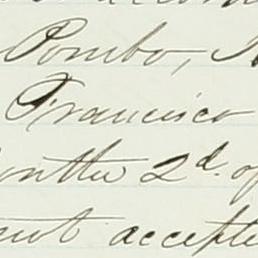 Pombo,
Francisco
on the 2d. of
not accepte